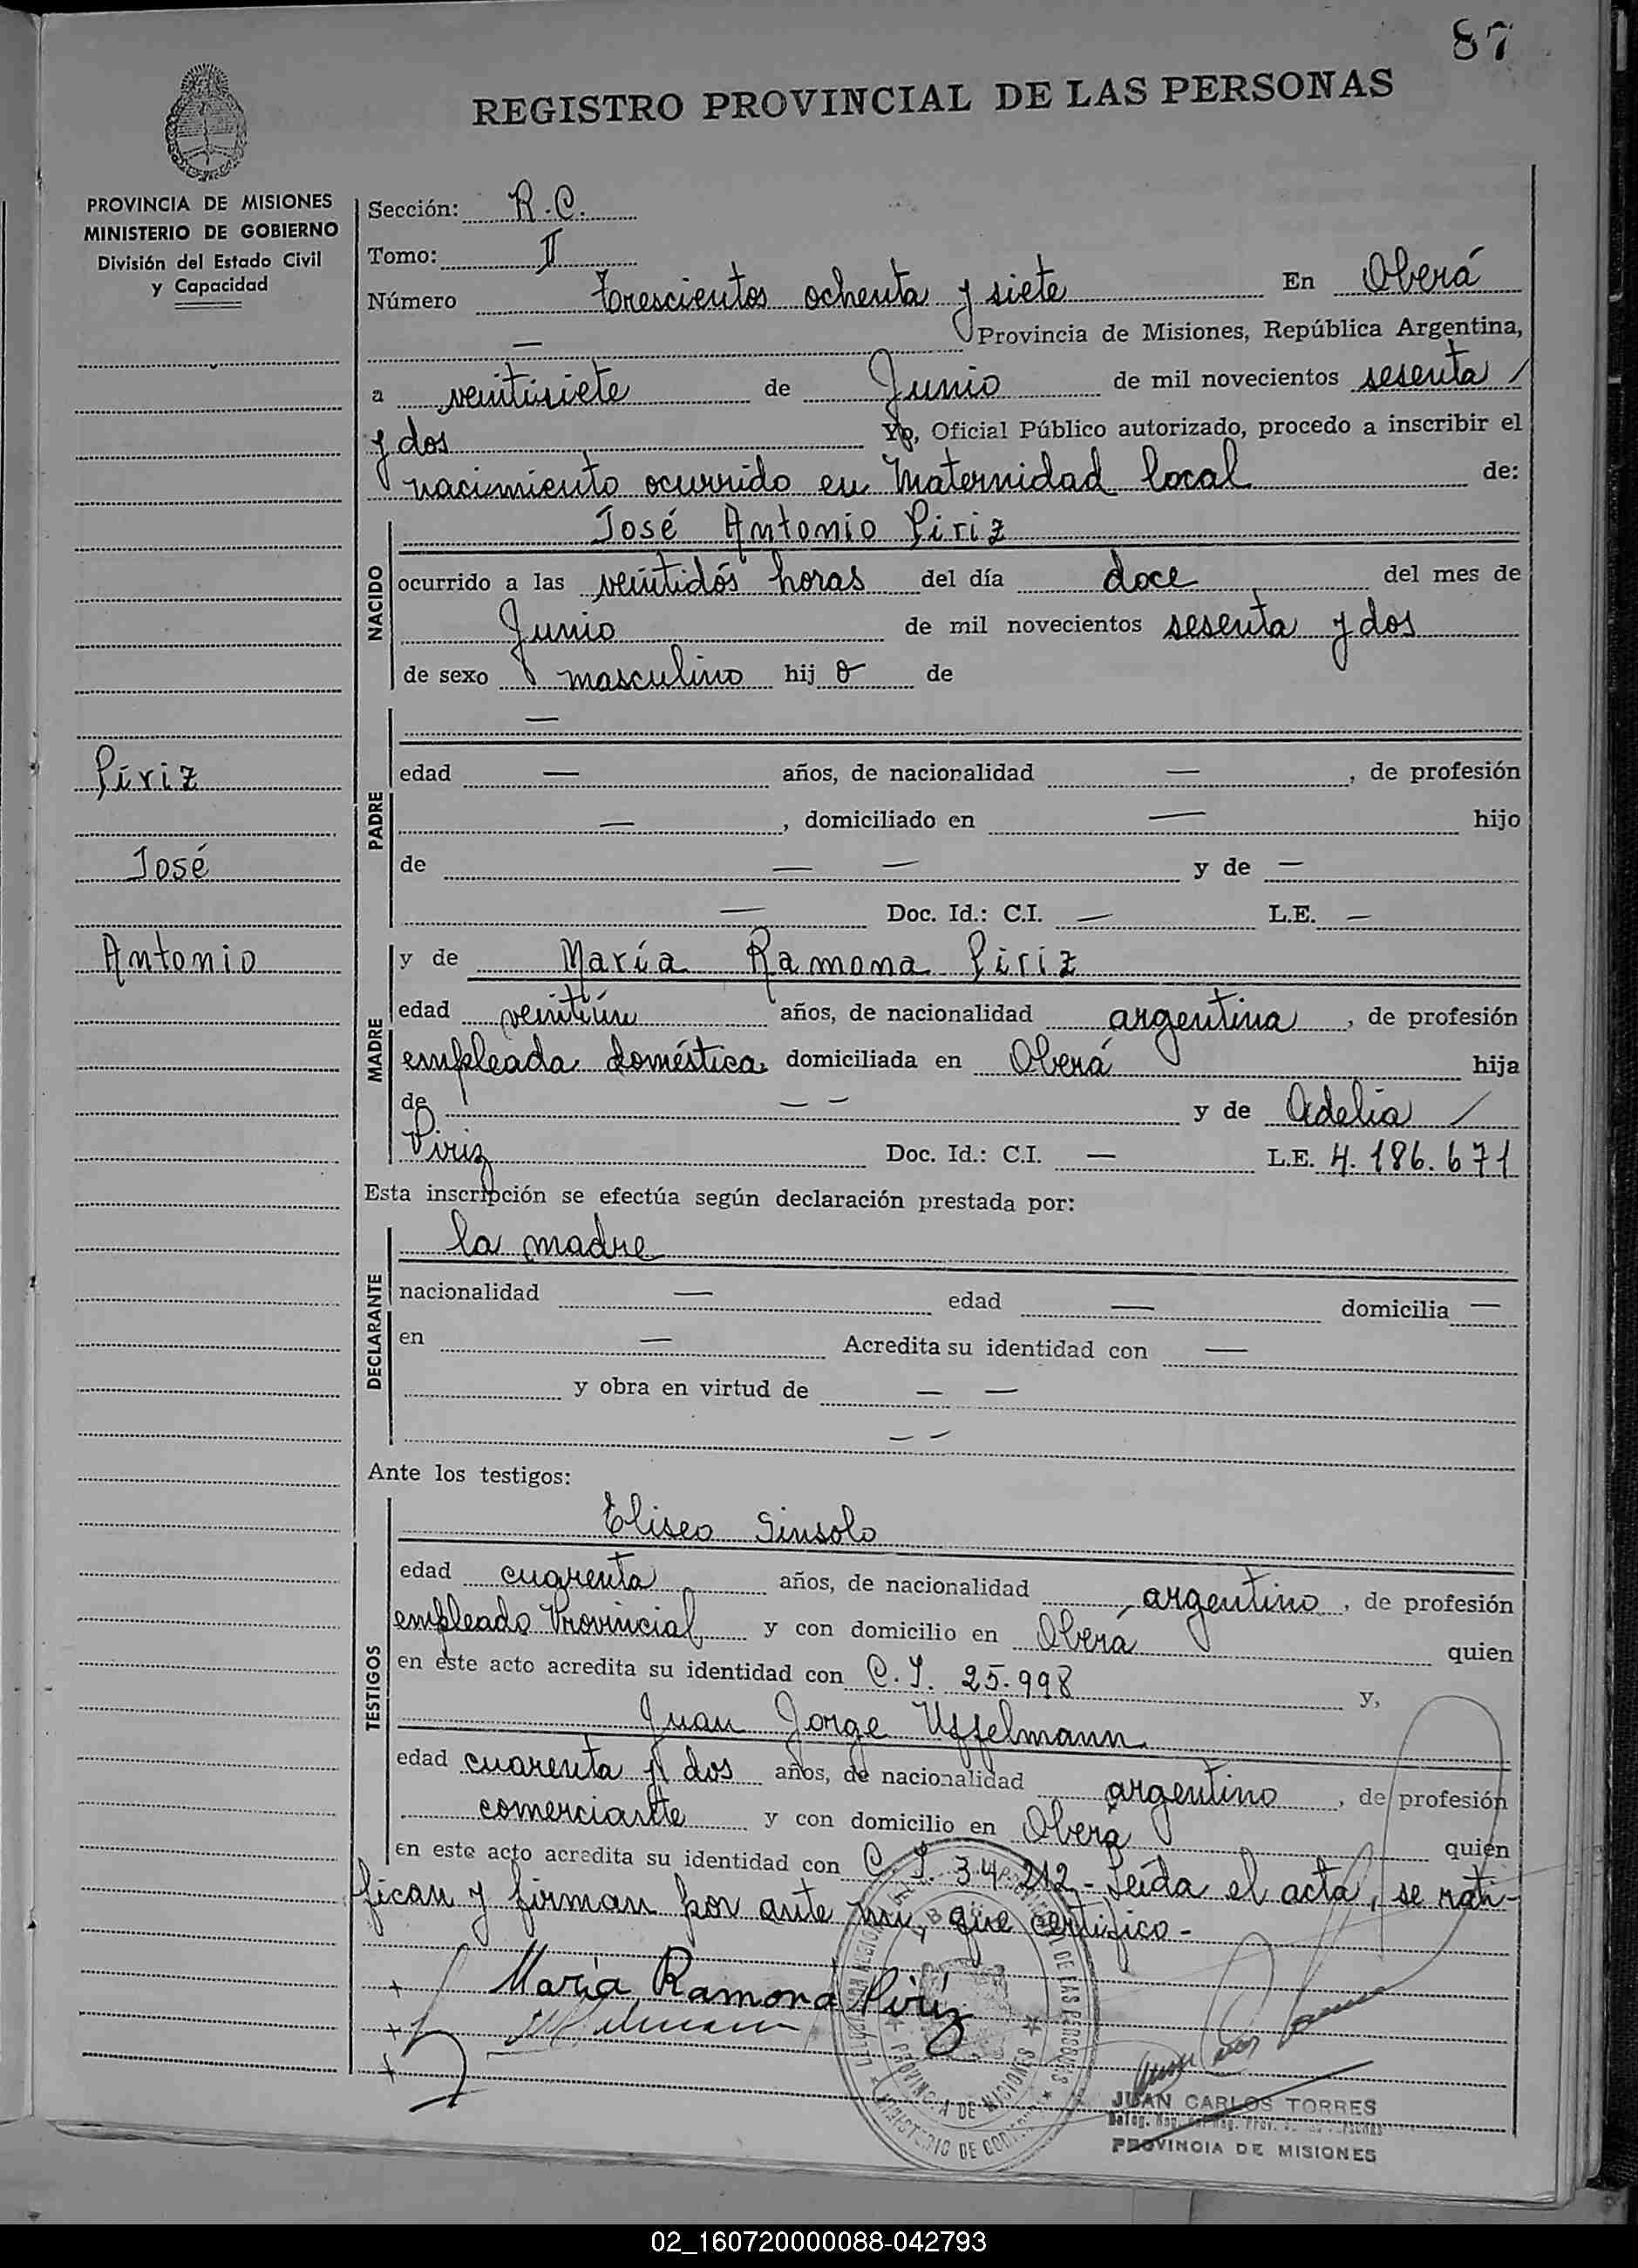 87
REGISTRO PROVINCIAL DE LAS PERSONAS
PROVINCIA DE MISIONES
MINISTERIO DE GOBIERNO
División del Estado Civil
y Capacidad
Piriz
José
Antonio
Sección: R.C.
Tomo: II
Número Trescientos ochenta y siete En Oberá
— Provincia de Misiones, República Argentina,
a veintisiete de Junio de mil novecientos sesenta /
y dos Yo, Oficial Público autorizado, procedo a inscribir el
nacimiento ocurrido en Maternidad local de:
NACIDO
José Antonio Piriz
ocurrido a las veintidós horas del día doce del mes de
Junio de mil novecientos sesenta y dos
de sexo masculino hij o de
PADRE
—
edad — años, de nacionalidad — , de profesión
— , domiciliado en — hijo
de — — y de —
— Doc. Id.: C.I. — L.E. —
MADRE
y de María Ramona Piriz
edad veintiún años, de nacionalidad argentina , de profesión
empleada doméstica, domiciliada en Oberá hija
de — — y de Adelia /
Piriz Doc. Id.: C.I. — L.E. 4.186.671
Esta inscripción se efectúa según declaración prestada por:
DECLARANTE
la madre
nacionalidad — edad — domicilia —
en — Acredita su identidad con —
y obra en virtud de — —
— —
Ante los testigos:
TESTIGOS
Eliseo Sinsolo
edad cuarenta años, de nacionalidad argentino , de profesión
empleado Provincial y con domicilio en Oberá quien
en este acto acredita su identidad con C.I. 25.998 y,
Juan Jorge Uffelmann
edad cuarenta y dos años, de nacionalidad argentino , de profesión
comerciante y con domicilio en Oberá quien
en este acto acredita su identidad con C.I. 34.212.- Leída el acta, se rati-
fican y firman por ante mí, que certifico.-
María Ramona Piriz
PROVINCIA DE MISIONES
JUAN CARLOS TORRES
PROVINCIA DE MISIONES
02_160720000088-042793